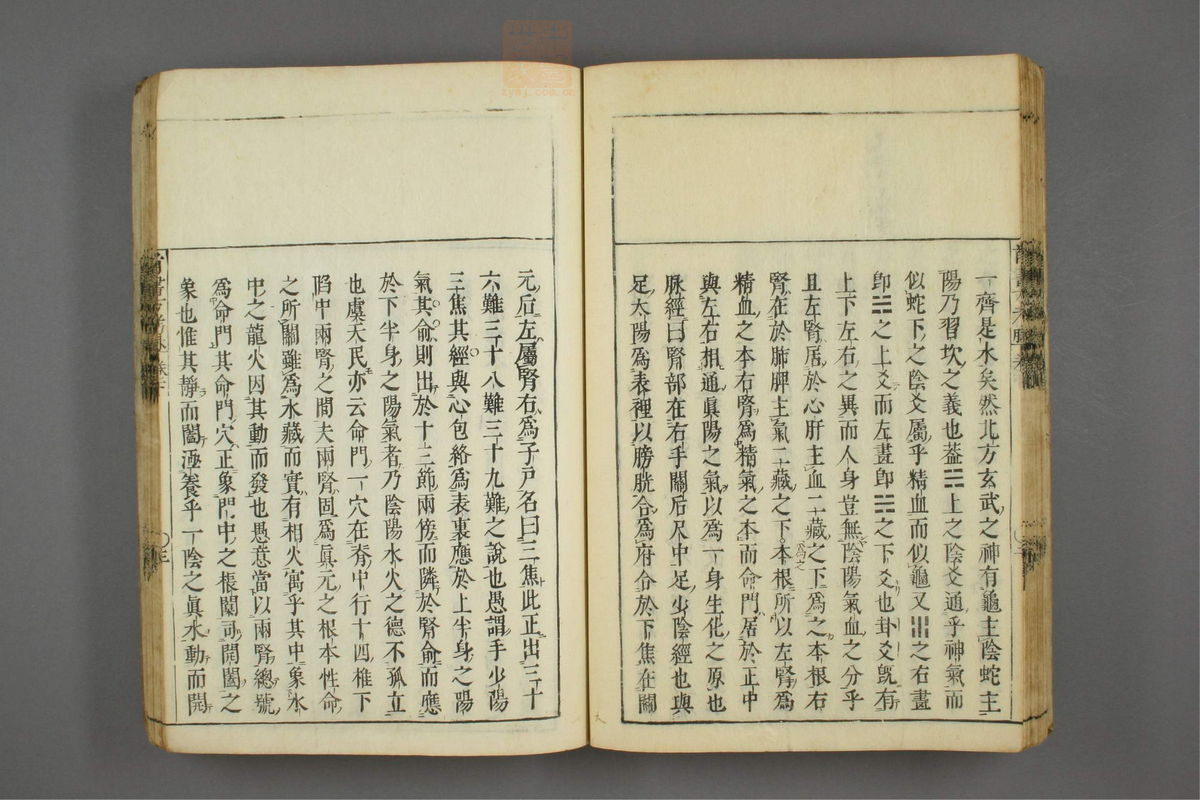 一齊是水矣然北方玄武之神有龜主陰蛇主
陽乃習坎之義也蓋☵上之陰爻通乎神氣而
似蛇下之陰爻屬乎精血而似龜又之右畫
卽☵之上爻而左畫卽☵之下爻也卦爻旣有
上下左右之異而人身豈無陰陽氣血之分乎
且左腎居於心肝主血二藏之下爲之本根右
腎在於肺脾主氣二藏之下爲之本根所以左腎爲
精血之本右腎爲精氣之本而命門居於正中
與左右相通眞陽之氣以爲一身生化之原也
脉經曰腎部在右手關后尺中足少陰經也與
足太陽爲表裡以膀胱合爲府合於下焦在關
元后左屬腎右爲子戸名曰三焦此正出三十
六難三十八難三十九難之說也愚謂手少陽
三焦其經與心包絡爲表裏應於上半身之陽
氣其俞則出於十三節兩傍而隣於腎俞而應
於下半身之陽氣者乃陰陽水火之德不孤立
也虞天民亦云命門一穴在脊中行十四椎下
陷中兩腎之間夫兩腎固爲眞元之根本性命
之所關雖爲水藏而實有相火寓乎其中象水
中之龍火因其動而發也愚意當以兩腎總號
爲命門其命門穴正象門中之棖闑司開闔之
象也惟其靜而闔涵養乎一陰之眞水動而開
zysj.com.cn